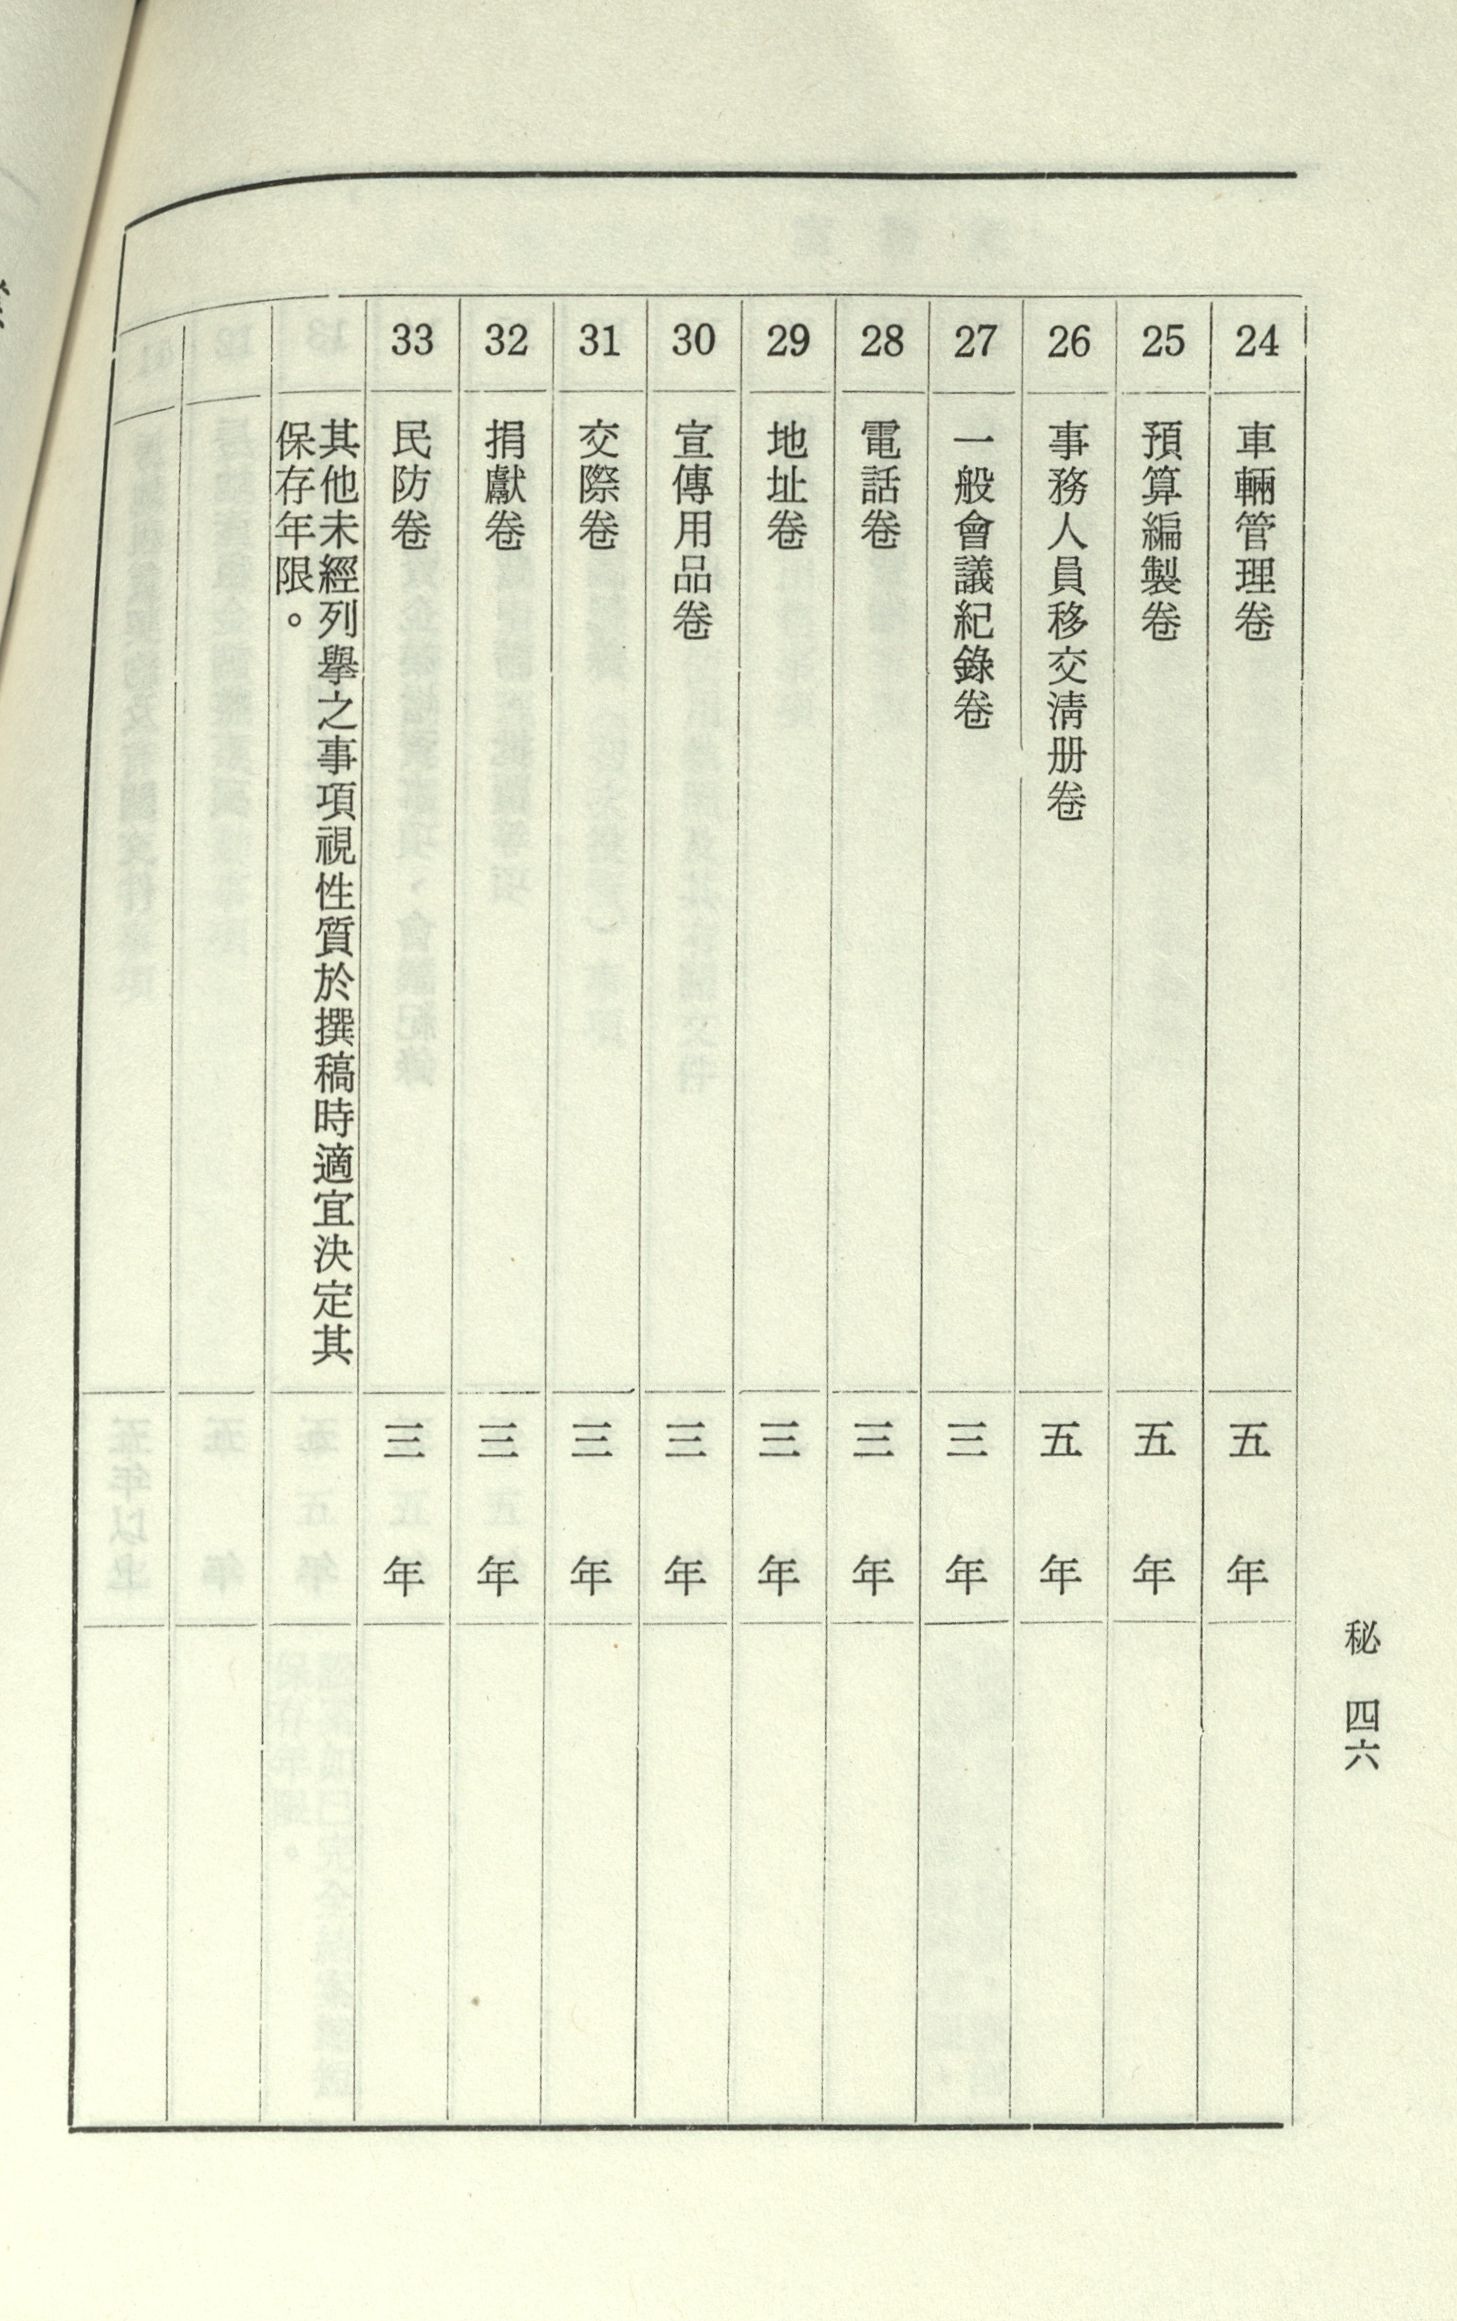 秘 四六
24 車輛管理卷 五年
25 預算編製卷 五年
26 事務人員移交淸册卷 五年
27 一般會議紀錄卷 三年
28 電話卷 三年
29 地址卷 三年
30 宣傳用品卷 三年
31 交際卷 三年
32 捐獻卷 三年
33 民防卷 三年
其他未經列舉之事項視性質於撰稿時適宜決定其
保存年限。